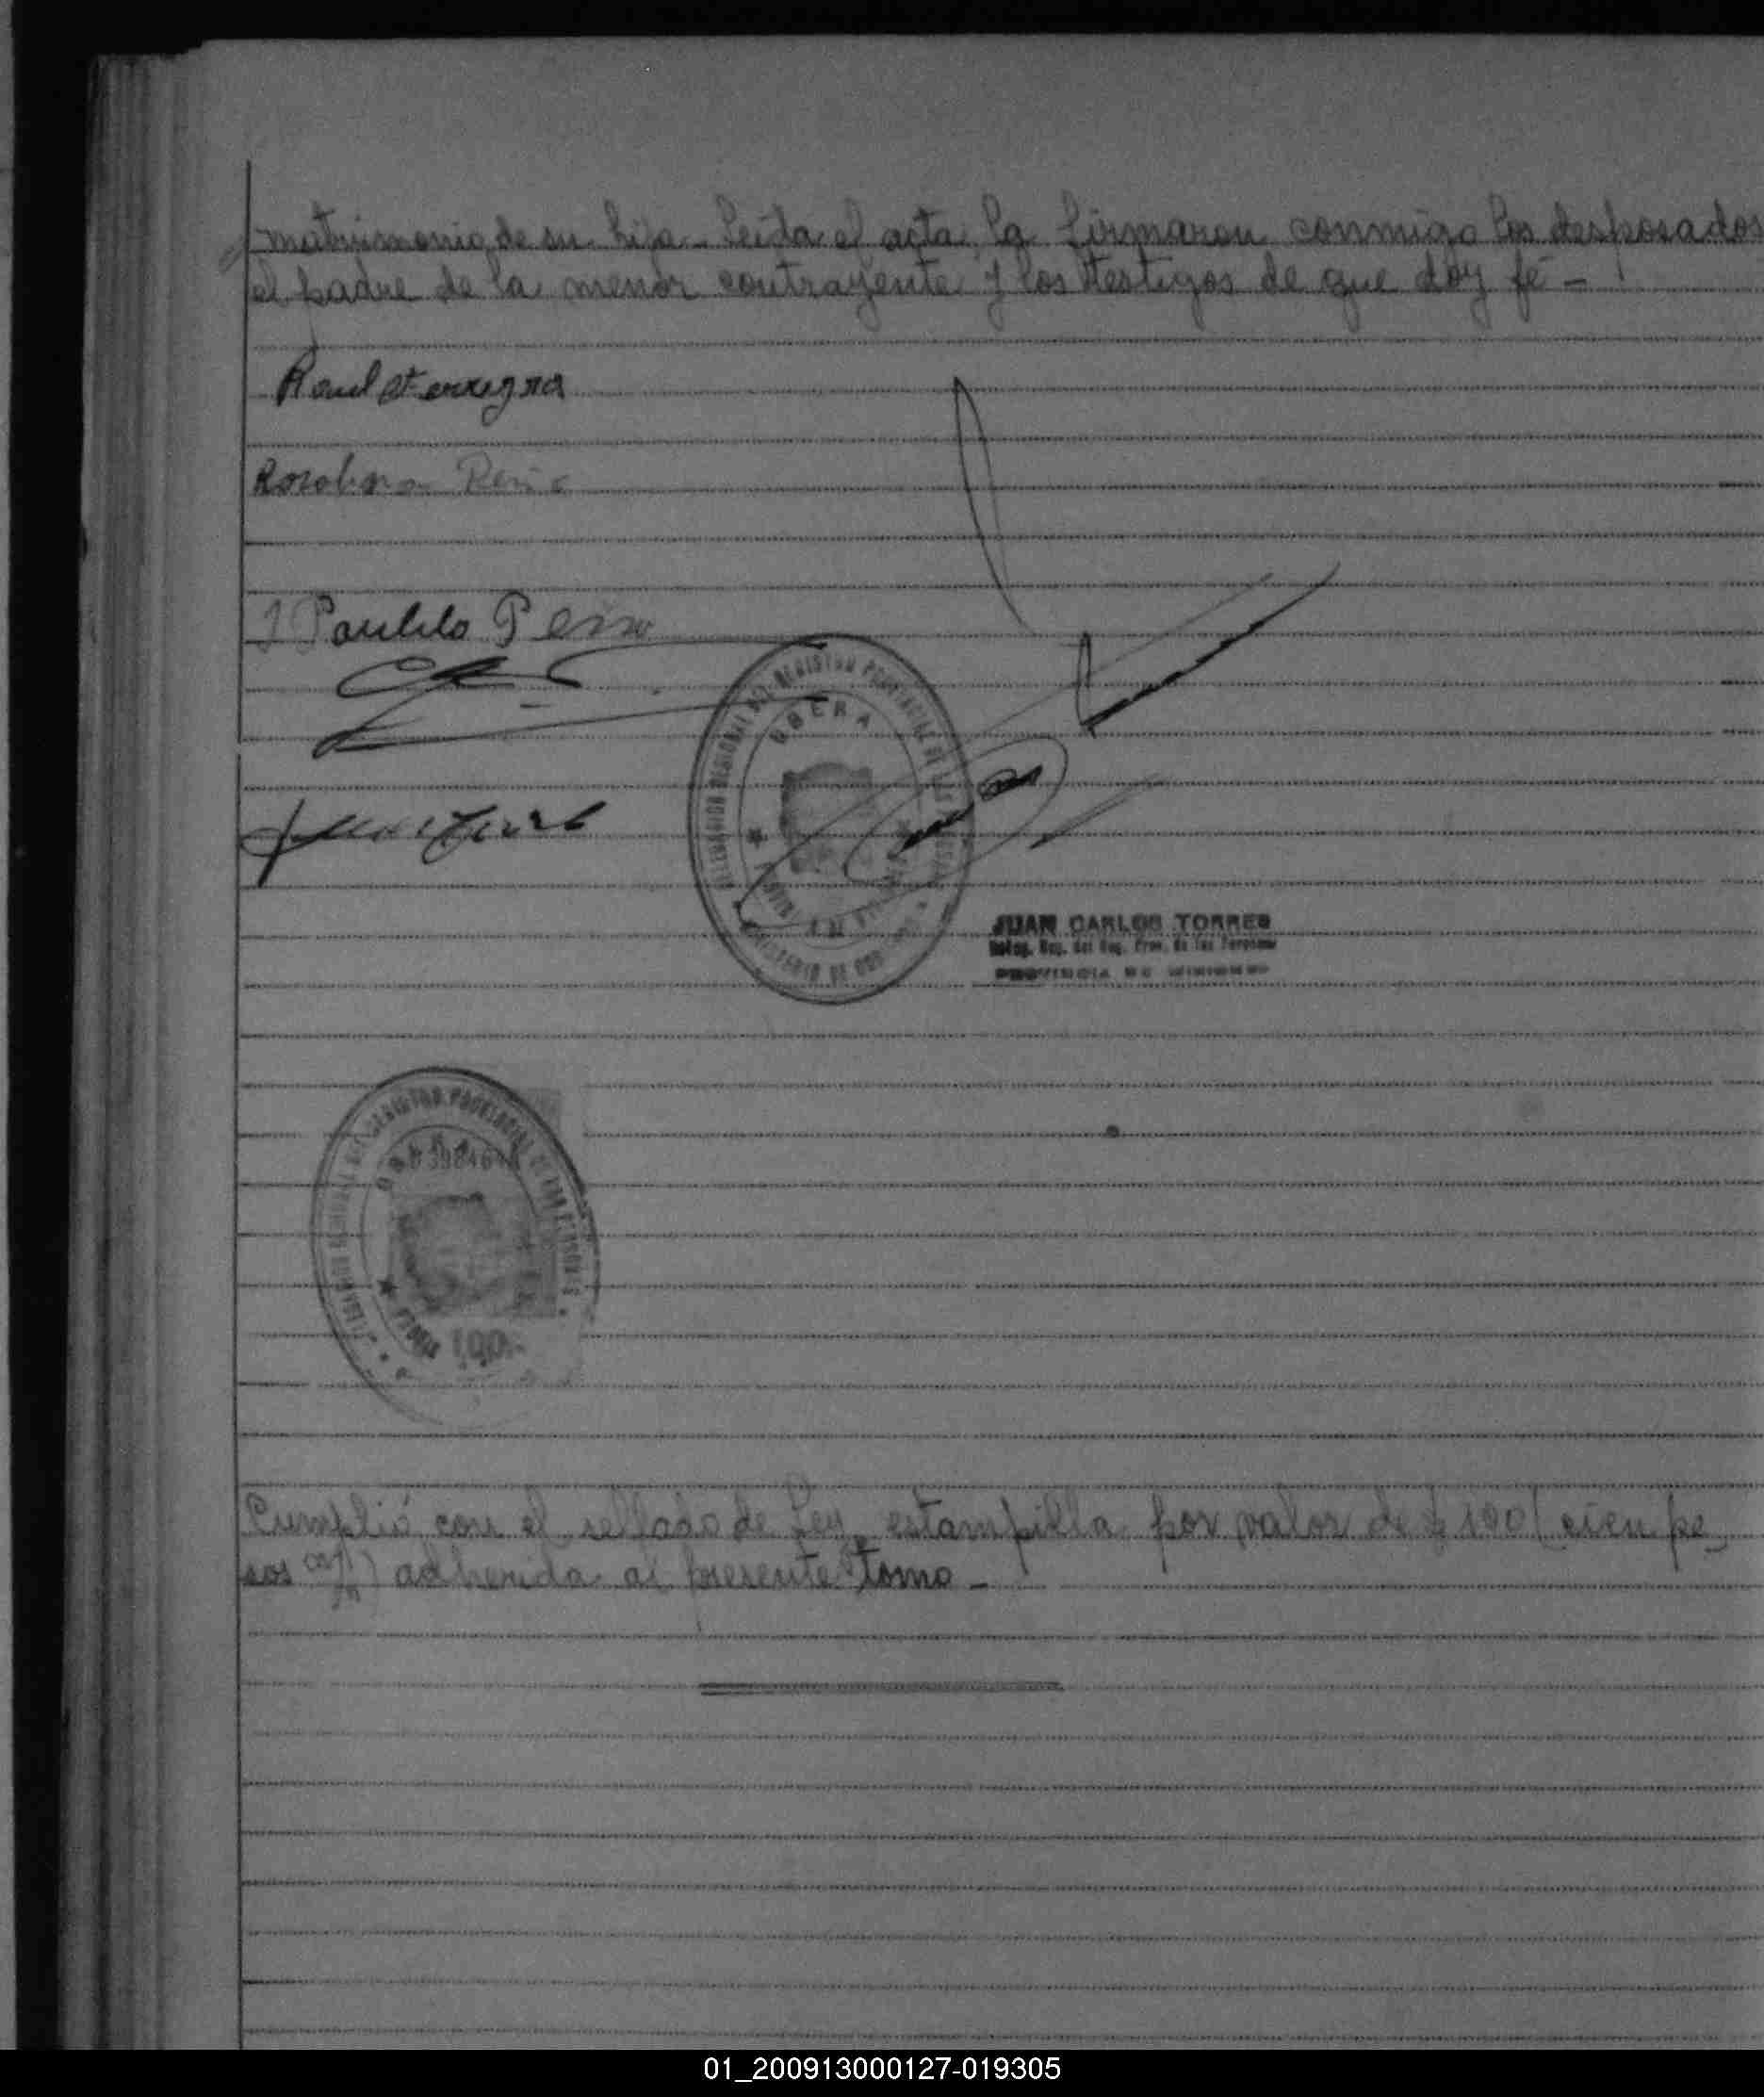 matrimonio de su hija - Leída el acta, la firmaron conmigo los desposados
el padre de la menor contrayente y los testigos de que doy fé -
Raul
Rosalina
DELEGACION REGIONAL DEL REGISTRO PROVINCIAL DE LAS
OBERA
JUAN CARLOS TORRES
Deleg. Reg. del Reg. Prov. de las Personas
PROVINCIA DE MISIONES
REGISTRO PROVINCIAL DE LAS PERSONAS
OBERA
100
Cumplió con el sellado de Ley, estampilla por valor de $ 100 (cien pe
sos m/n) adherida al presente tomo -
01_200913000127-019305